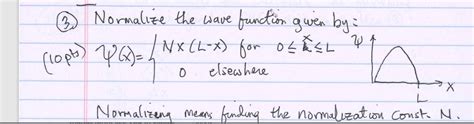 ③ Normalize the wave function given by:
(10 pts) Ψ(x)= { Nx(L-x) for 0≤x≤L Ψ
0 elsewhere
x
L
Normalizing means finding the normalization const. N.